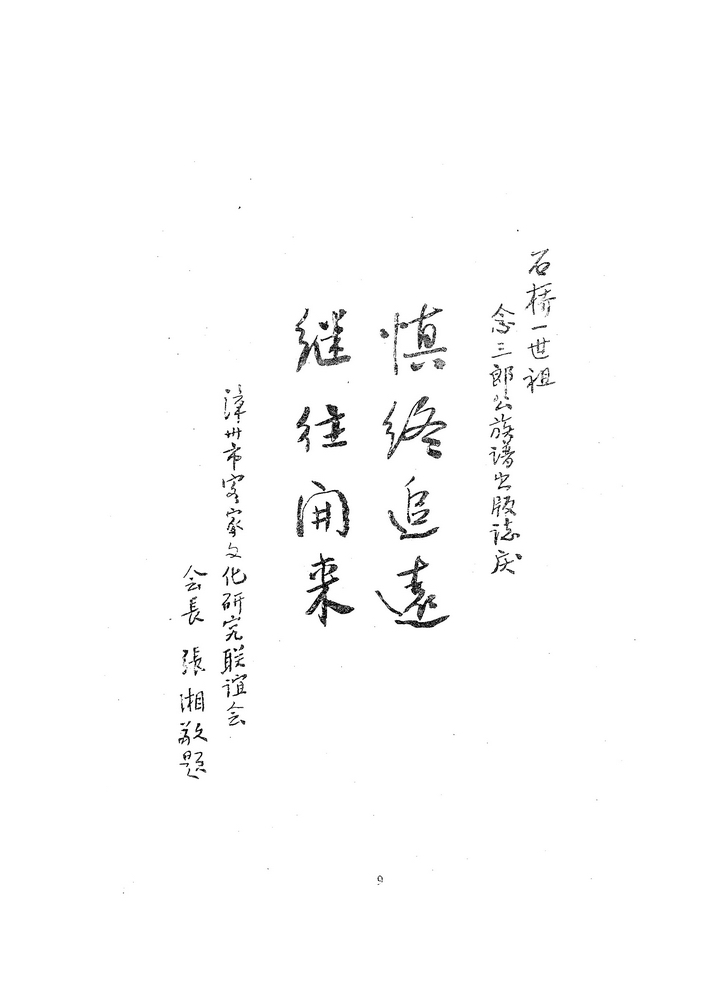 石橋一世祖
念三郎公族谱出版誌庆
慎终追遠
继往開来
漳州市客家文化研究联谊会
会長 張湘敬题
9